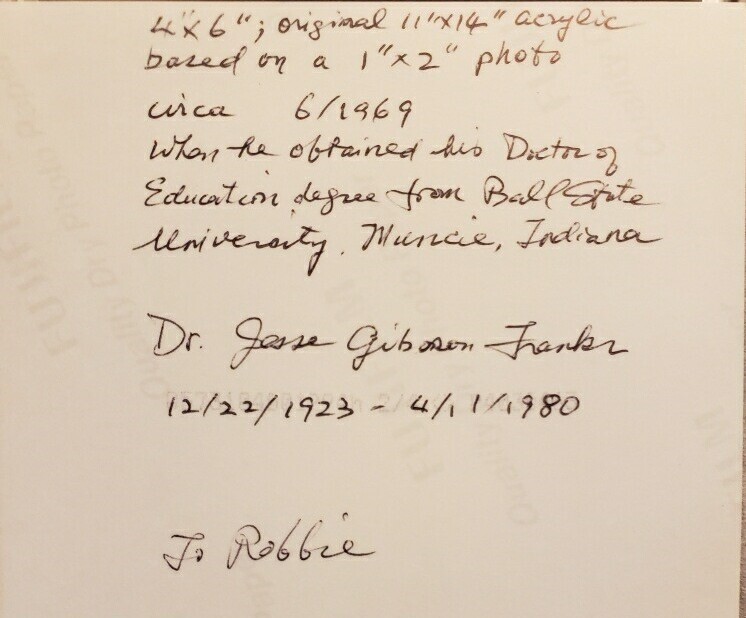 4"x6"; original 11"x14" acrylic
based on a 1"x2" photo
circa 6/1969
When he obtained his Doctor of
Education degree from Ball State
University, Muncie, Indiana
Dr. Jesse Gibson Franks
12/22/1923 - 4/11/1980
To Robbie
FUJIFILM
Quality Dry Photo Paper